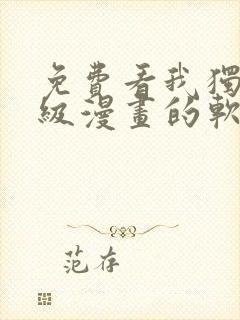 免費看我獨
級漫畫的軟
范存